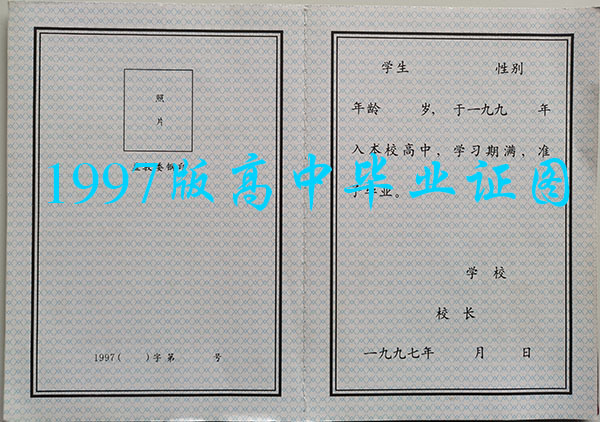 照
片
1997(    )字第    号
学生    性别
年龄    岁，于一九九    年
入本校高中，学习期满，准
予毕业。
学 校
校 长
一九九七年    月    日
1997版高中毕业证图